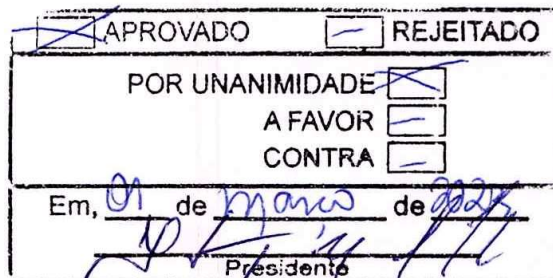 APROVADO — REJEITADO
POR UNANIMIDADE
A FAVOR —
CONTRA —
Em, 01 de março de
Presidente